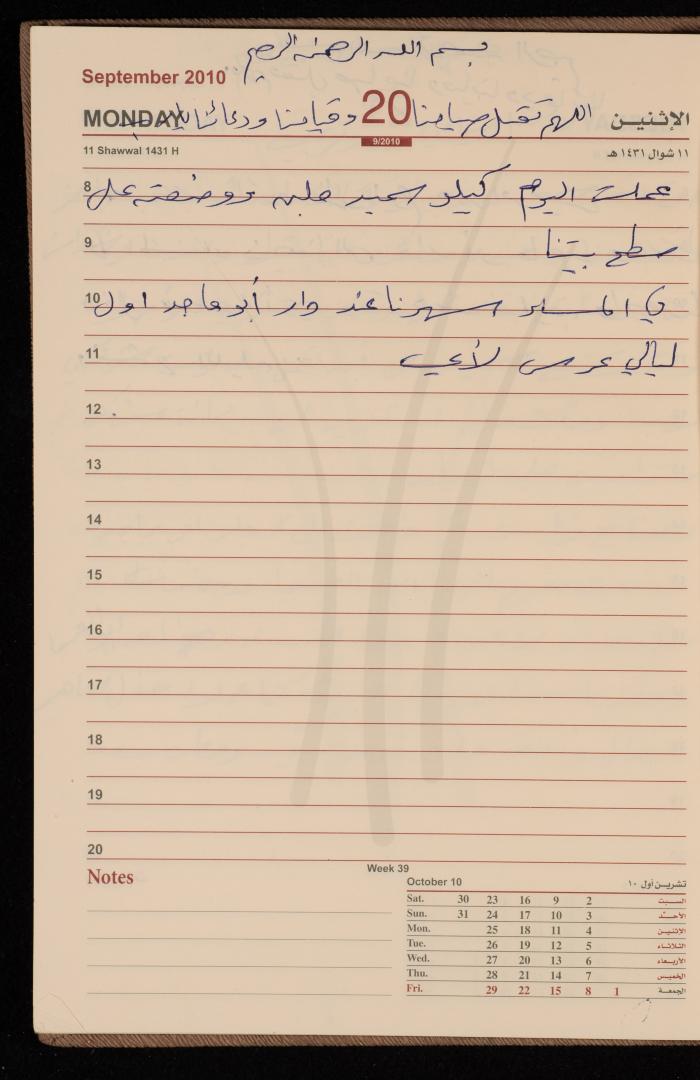 بسم الله الرحمن الرحيم
September 2010
اللهم تقبل صيامنا وقيامنا ودعائنا
MONDAY 20 الإثنين
9/2010
11 Shawwal 1431 H ١١ شوال ١٤٣١ هـ
8 عملت اليوم كيلو سميد حلبه ووضعته على
9 سطح بيتنا
10 في المساء سهرنا عند دار أبو ماجد اول
11 ليالي عرس لأعي
12
13
14
15
16
17
18
19
20
Week 39
Notes
October 10 تشرين أول ١٠
Sat. 30 23 16 9 2 السبت
Sun. 31 24 17 10 3 الأحد
Mon. 25 18 11 4 الإثنين
Tue. 26 19 12 5 الثلاثاء
Wed. 27 20 13 6 الأربعاء
Thu. 28 21 14 7 الخميس
Fri. 29 22 15 8 1 الجمعة